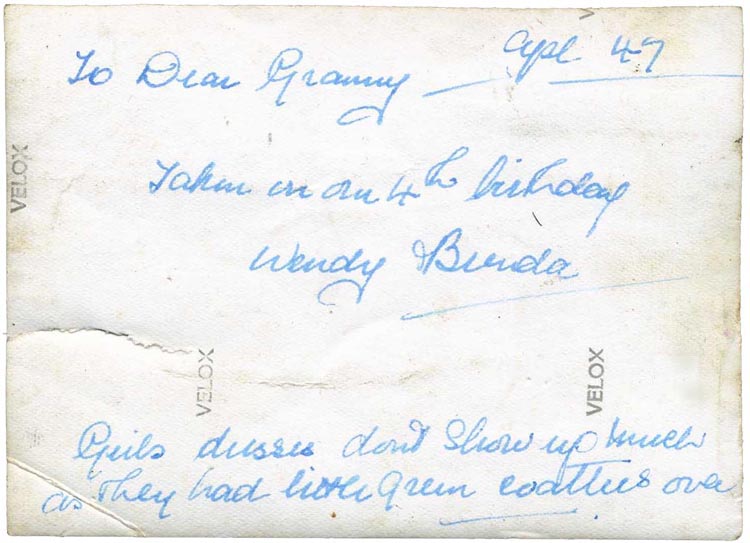 To Dear Granny
Apl 47
Taken on our 4th birthday
Wendy & Brenda
Girls dresses don't show up much
as they had little green coattees over
VELOX
VELOX
VELOX
VELOX